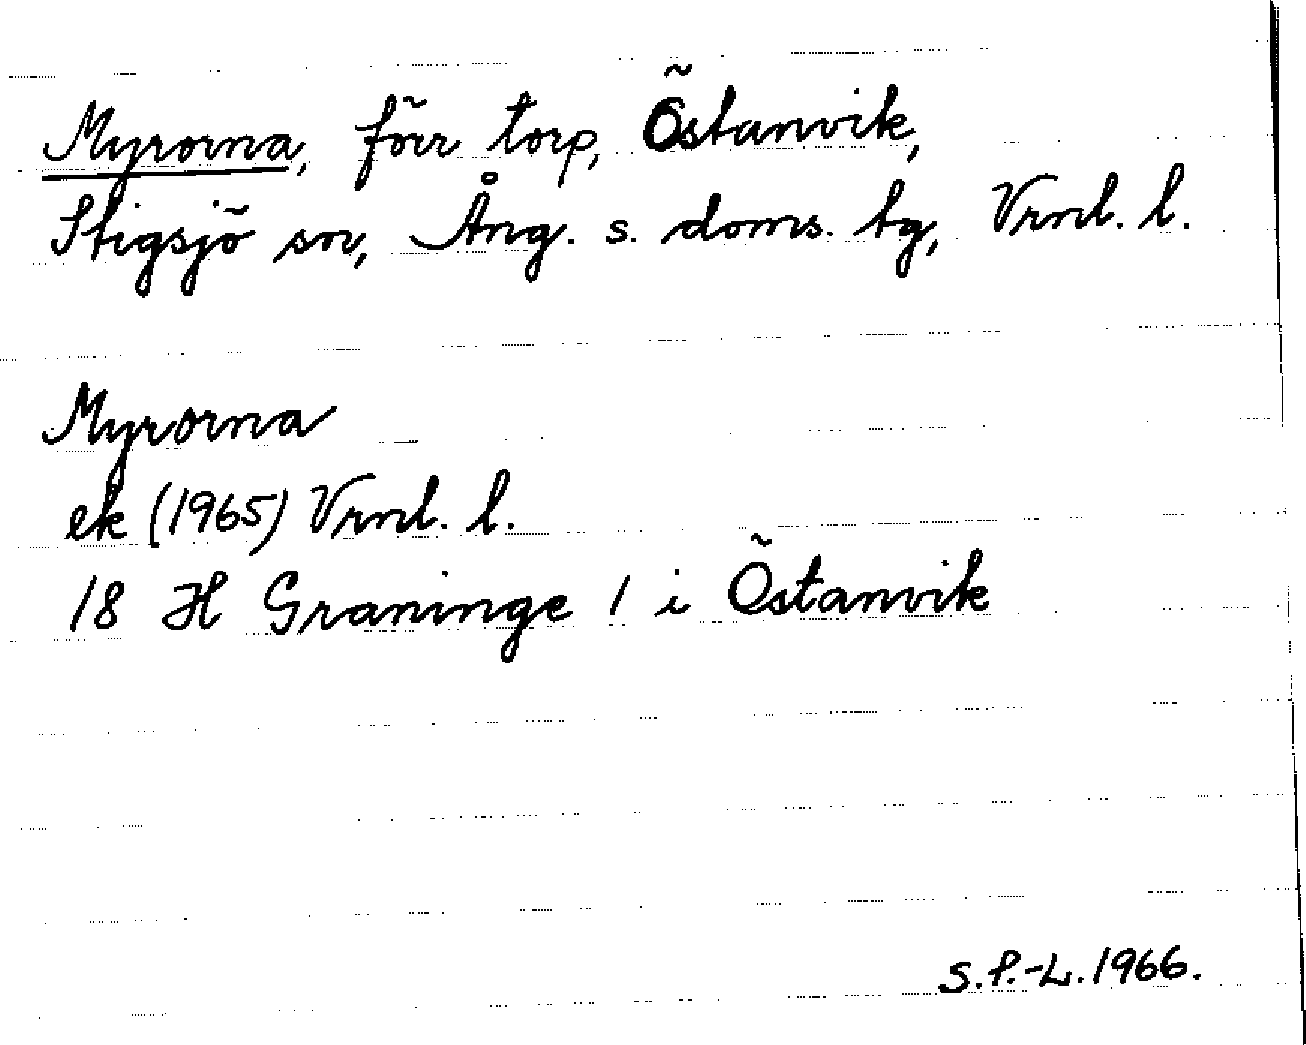 Myrorna, förr torp, Östanvik,
Stigsjö sn, Ång. s. doms. tg, Vrnl. l.
Myrorna
ek (1965) Vrnl. l.
18 H Graninge 1 i Östanvik
S.P.-L. 1966.